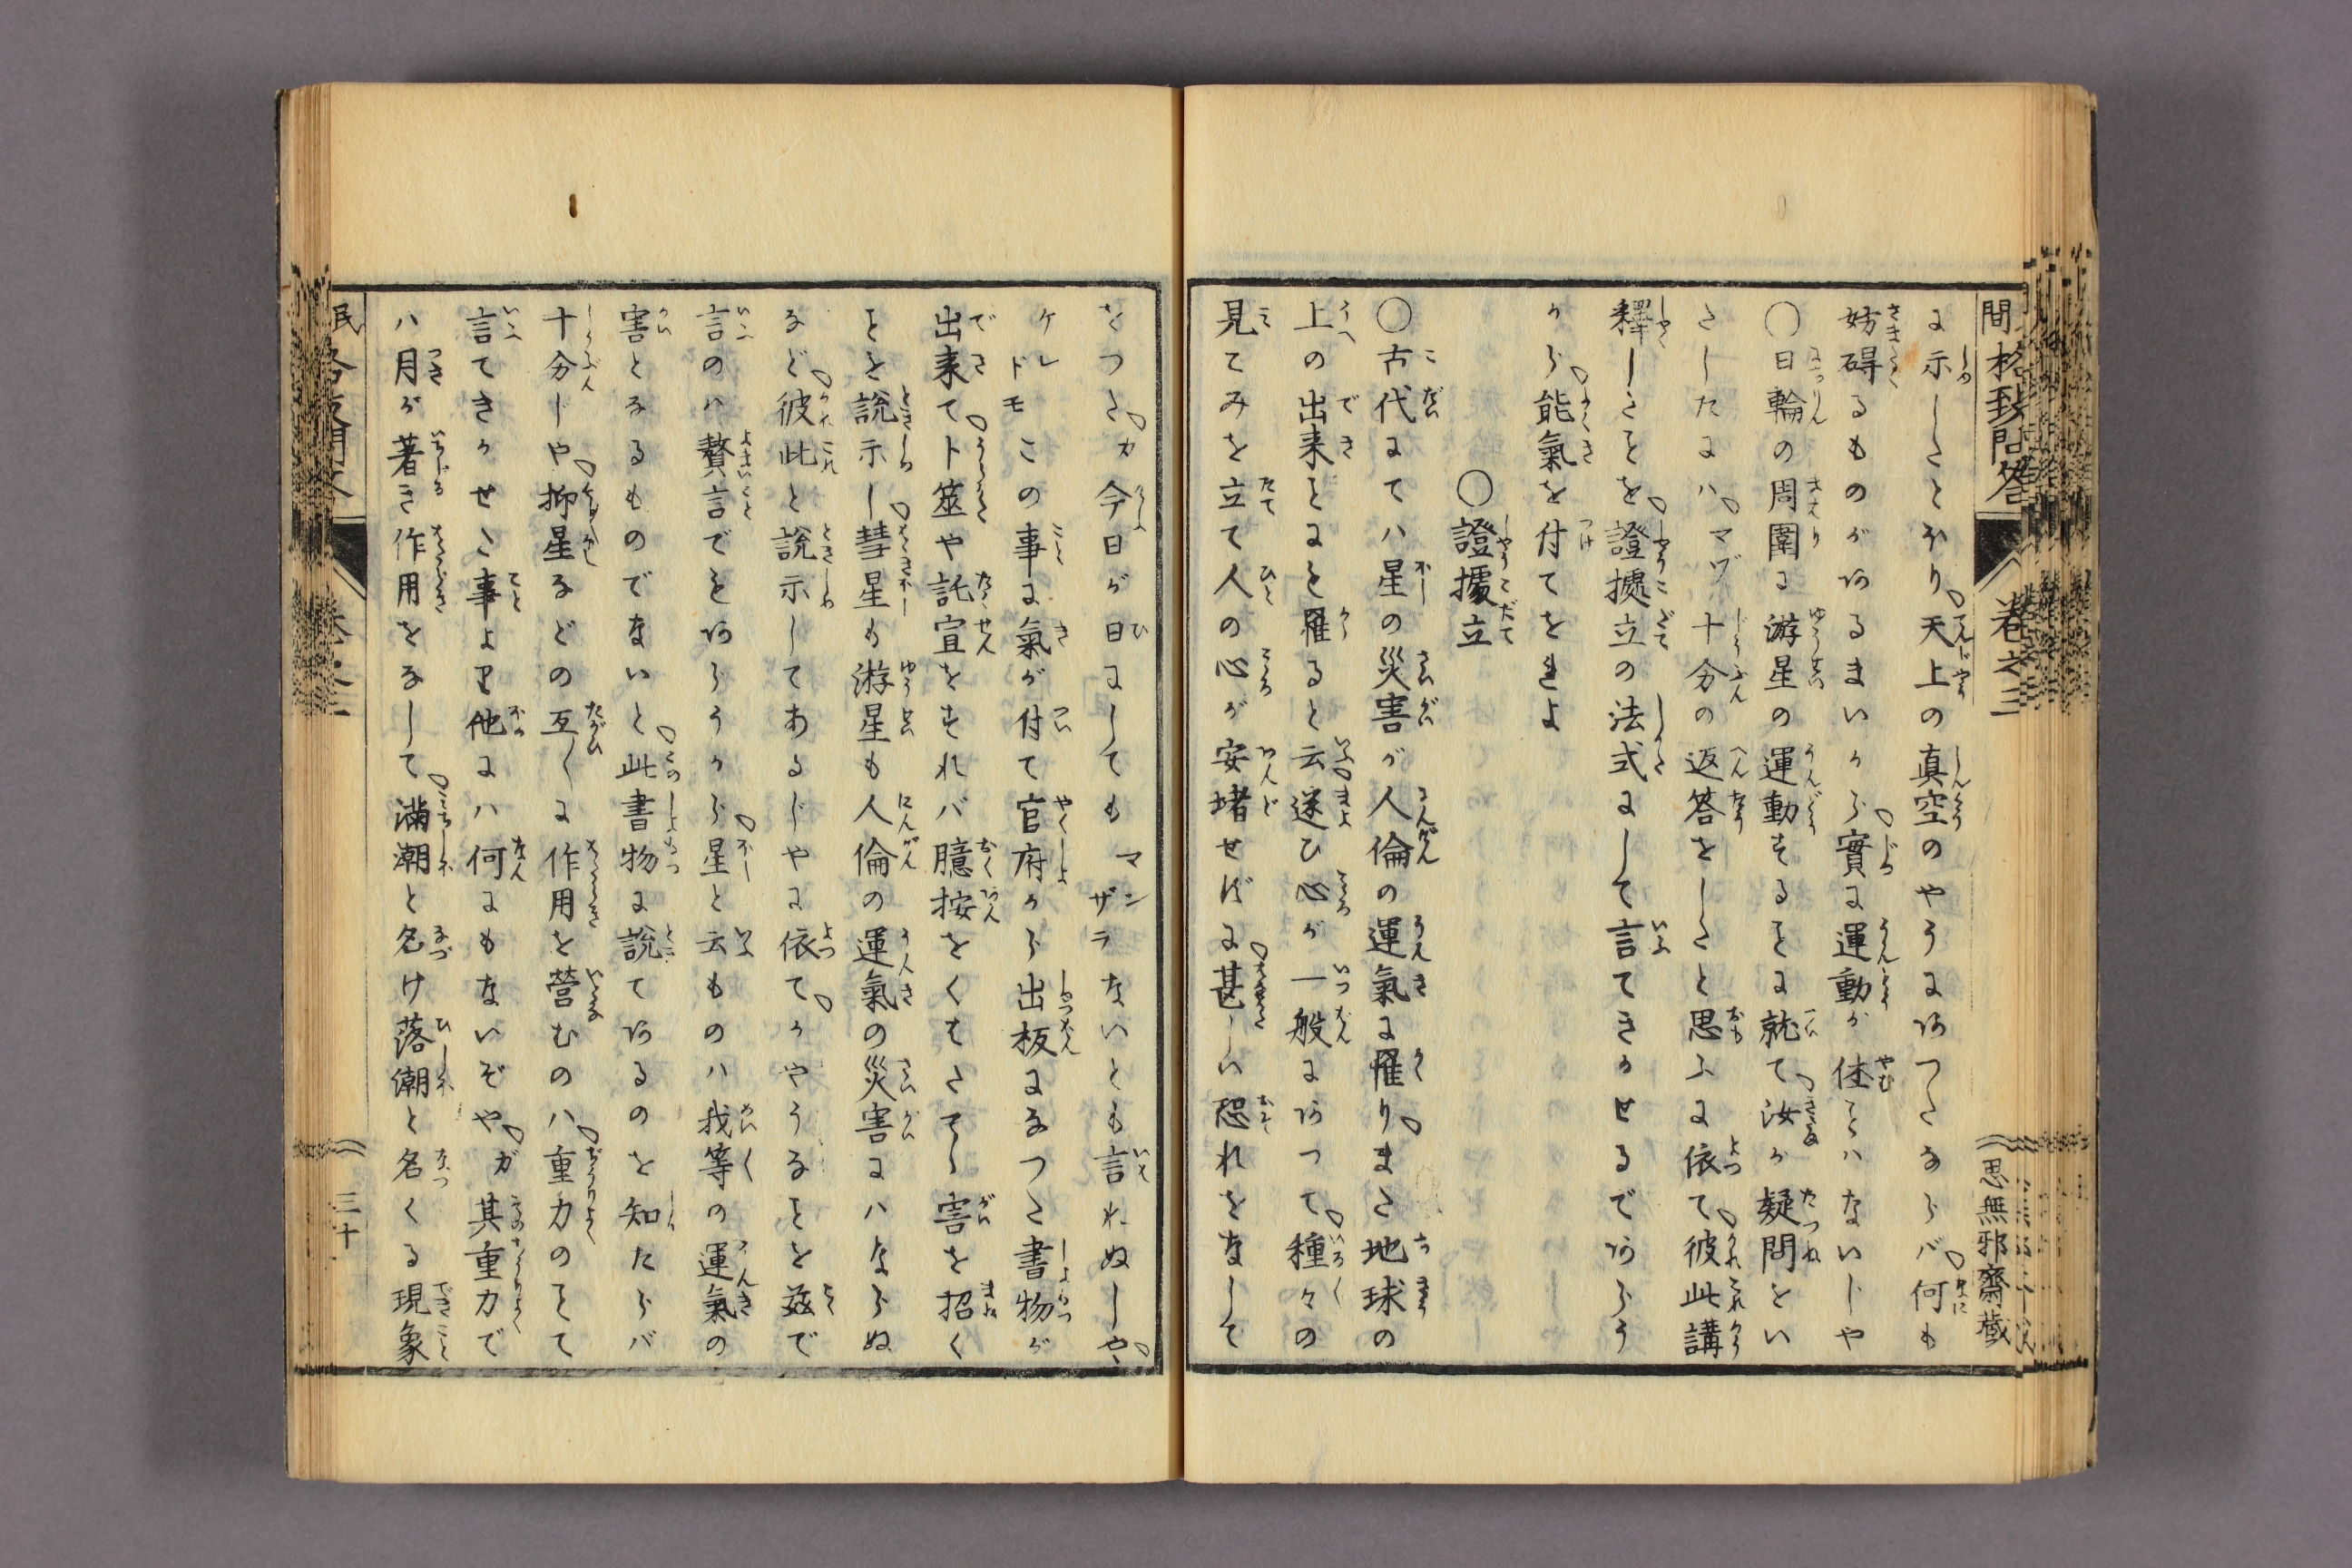 間格致問答 卷之三 思無邪齋蔵
に示したとほり天上の真空のやうにあつたならバ何も
妨碍るものがあるまいから實に運動が住ことハないじや
○日輪の周圍に游星の運動するとに就て汝が疑問をい
たしたにハマヅ十分の返答をしたと思ふに依て彼此講
釋したとを證據立の法式にして言てきかせるであらう
から能氣を付てをれよ
○證據立
○古代にてハ星の災害が人倫の運氣に罹りまた地球の
上の出来とにも罹ると云迷ひ心が一般にあつて種々の
見てみを立て人の心が安堵せずに甚しい恐れをなして
をつたガ今日が日にしてもマンザラないとも言れぬじや
ケレドモこの事に氣が付て官府から出板になつた書物が
出来てト筮や託宣をすれバ臆按をくはたてゝ害を招く
とを説示し彗星も游星も人倫の運氣の災害にハならぬ
など彼此と説示してあるじやに依てかやうなとを茲で
言のハ贅言でもあらうから星と云ものハ我等の運氣の
害となるものでないと此書物に説てあるのを知たらバ
十分じや抑星などの互〳〵に作用を營むのハ重力のとて
言てきかせた事より他にハ何にもないぞやガ其重力で
ハ月が著き作用をなして滿潮と名け落潮と名くる現象
三十